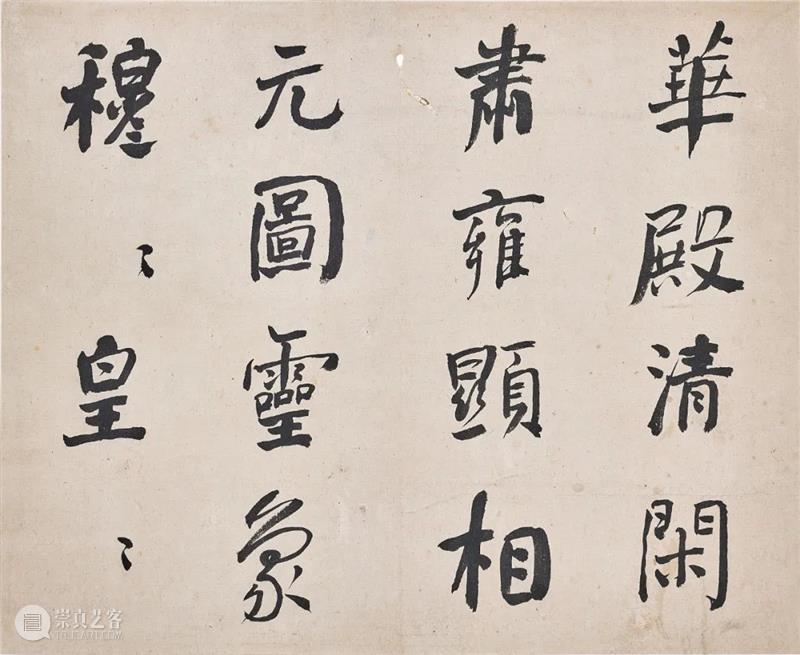 華殿清閑
肅雍顯相
元圖靈象
穆〻皇〻
崇真艺客